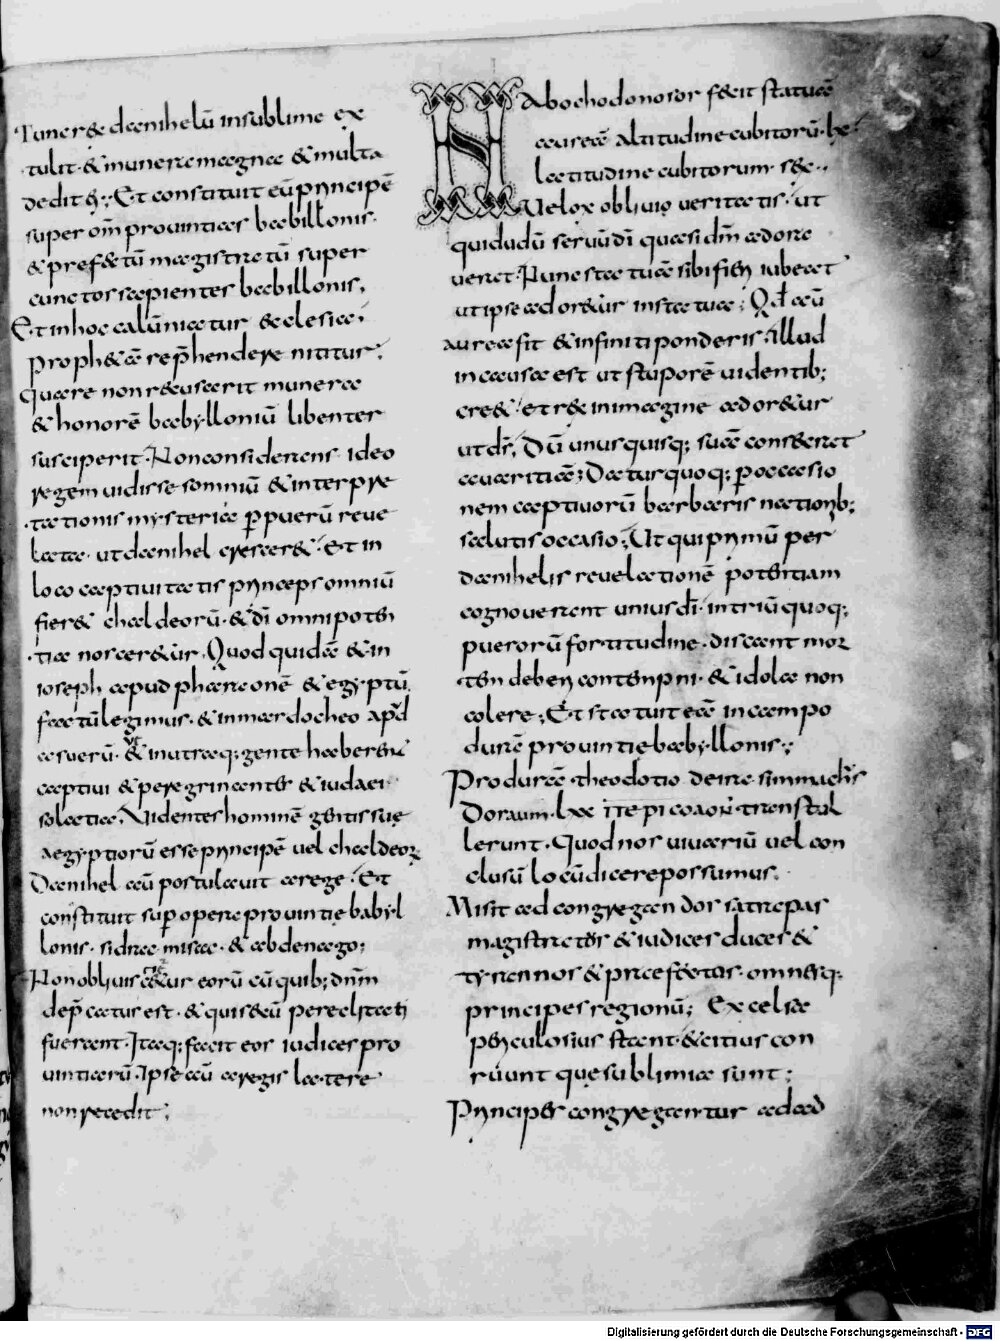 Tunc rex danihelū insublime ex
tulit · & munera magna & multa
dedit ei ; Et constituit eū principē
super om̄ prouintias babillonis ·
& prefectū magistratū super
cunctos sapientes babillonis ,
Et inhoc calūniatur ecclesiae ;
Proph&ā rep̄hendere nititur ;
Quare non r&usarit munera
& honorē babylloniū libenter
susciperit · Non considerens ideo
regem uidisse somniū & interpre
tationis mysteria p puerū reue
lata · ut danihel cresceret · Et in
loco captiuitatis princeps omniū
fier& chaldeorū · & dī omnipoten
tia nosceretur · Quod quidā & in
ioseph apud pharaonē & egyptū
factū legimus · & in mardocheo apud
asuerū · ut & in utraq; gente haberent
captiui & peregrinantes & iudaei
solatia , Videntes hominē gentis sue
aegyptiorū esse principē uel chaldeoꝝ
Danihel aū postulauit a rege · Et
constituit sup opera prouintie babyl
lonis · sidrac misac · & abdenago ;
Non obliuiscitur eorū cū quib; dnm̄
dep̄catus est · & qui secū periclitati
fuerant · Itaq; facit eos iudices pro
uintiarū · Ipse aū a regis latere
non recedit ;
Nabochodonosor fecit statuā
aureā altitudine cubitorū · lx ·
latitudine cubitorum · sex ·
Uelox obliuio ueritatis · ut
quidudū seruū dī quasi dm̄ adora
uerat · Nunc statuā sibi fieri iubeat
ut ipse ador&ur in statua ; Qd aū
aurea sit & infiniti ponderis · illud
in causa est ut stuporē uidentib;
cre& · et r& in imagine ador&ur
ut ds̄ , Dū unusquisq; suā consecret
auaritiā ; Datur quoq; p occasio
nem captiuorū barbaris nationib;
salutis occasio ; Ut qui primū per
danihelis reuelationē potentiam
cognouerant unius dī · in triū quoq;
puerorū fortitudine · discant mor
tem deberi contempni · & idola non
colere ; Et statuit eā in campo
durē prouintie babyllonis ;
Pro durā · theodotio deira · simmachus
Doraum · lxx περιcoaoν · transtul
lerunt · Quod nos uiuariū uel con
clusū locū dicere possumus .
Misit ad congregandos satrapas
magistratus & iudices duces &
tyrannos & praefectus · omnesq;
principes regionū ; Excelsa
periculosius stant · & citius con
ruunt que sublimia sunt ;
Principes congregantur ad ad
Digitalisierung gefördert durch die Deutsche Forschungsgemeinschaft - DFG